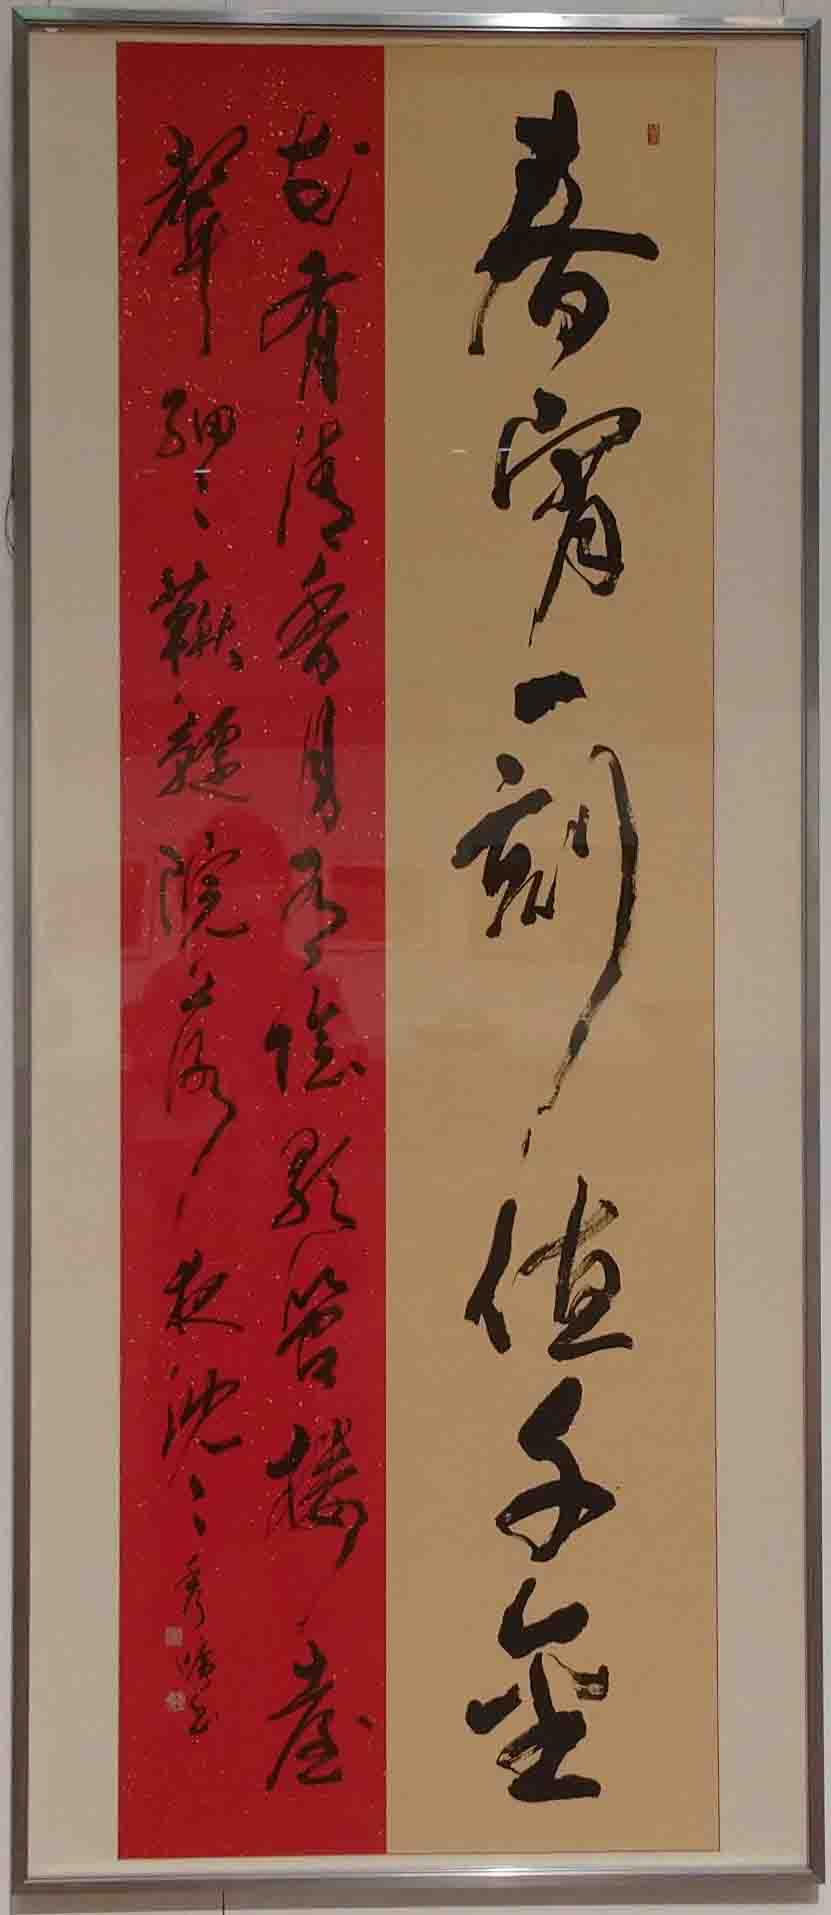 春宵一刻值千金
花有清香月有陰歌管樓臺
聲細〻鞦韆院落夜沈〻秀